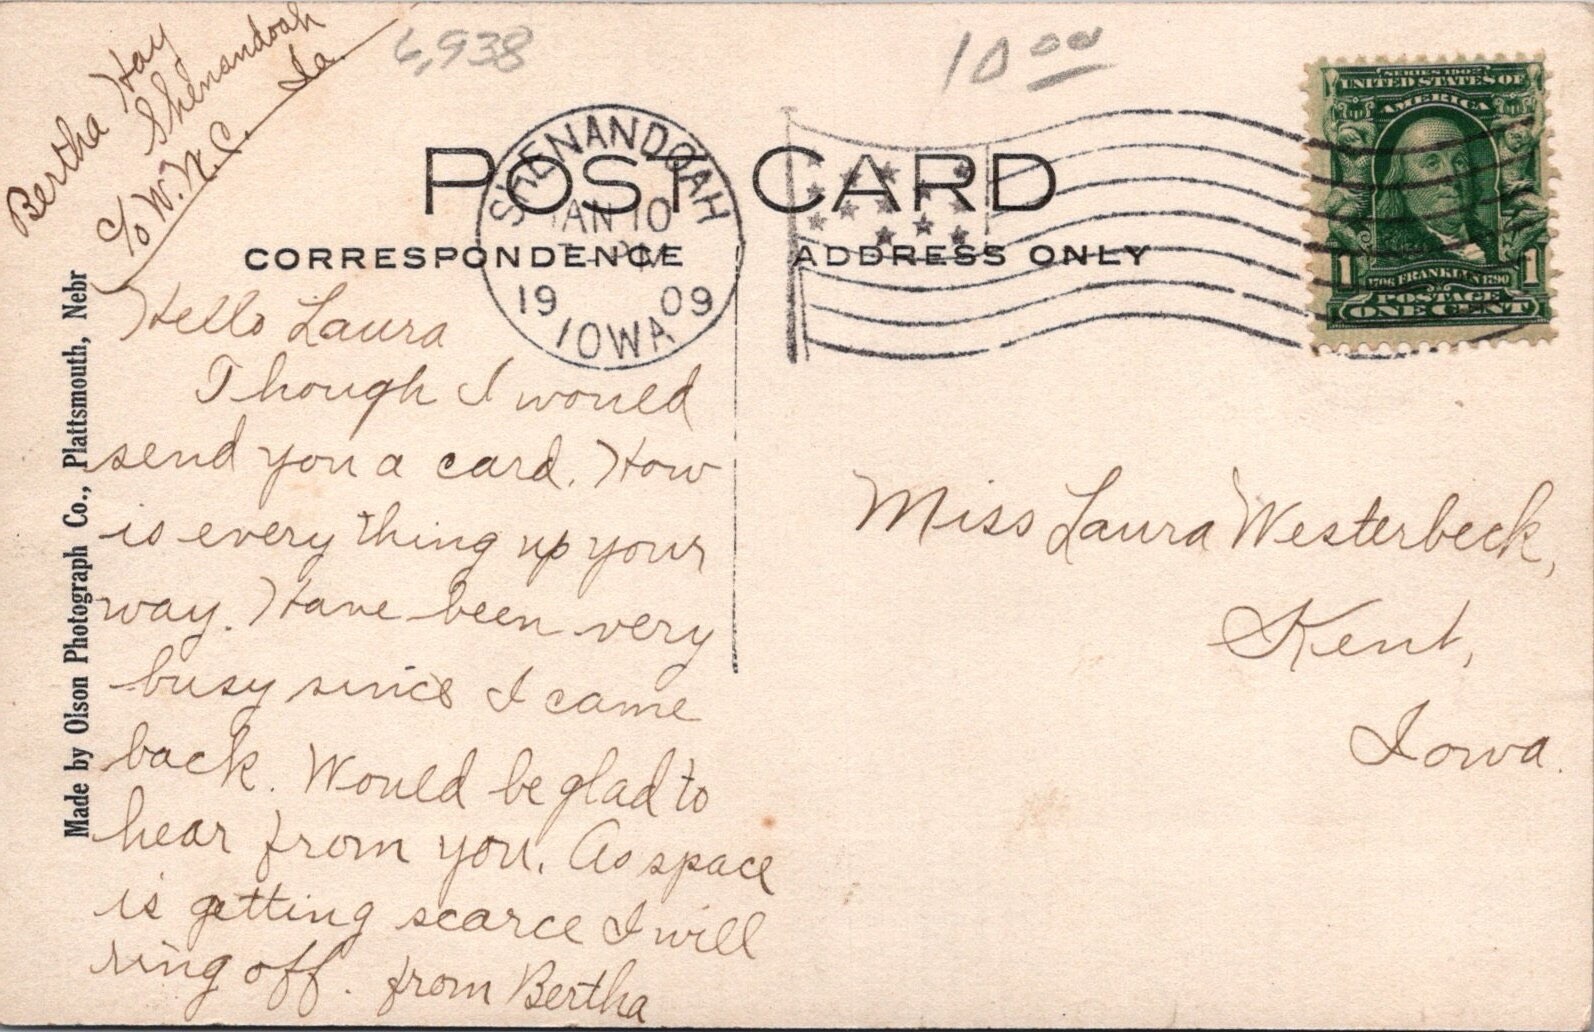 Bertha Hay
Shenandoah
c/o W.N.C. Ia.
6,938
10 00
POST CARD
CORRESPONDENCE
ADDRESS ONLY
SHENANDOAH
JAN 10
PM
19 09
IOWA
SERIES 1902
UNITED STATES OF
AMERICA
1 1
1706 FRANKLIN 1790
POSTAGE
ONE CENT
Made by Olson Photograph Co., Plattsmouth, Nebr
Hello Laura
Though I would
send you a card. How
is every thing up your
way. Have been very
busy since I came
back. Would be glad to
hear from you. As space
is getting scarce I will
ring off. from Bertha
Miss Laura Westerbeck,
Kent,
Iowa.